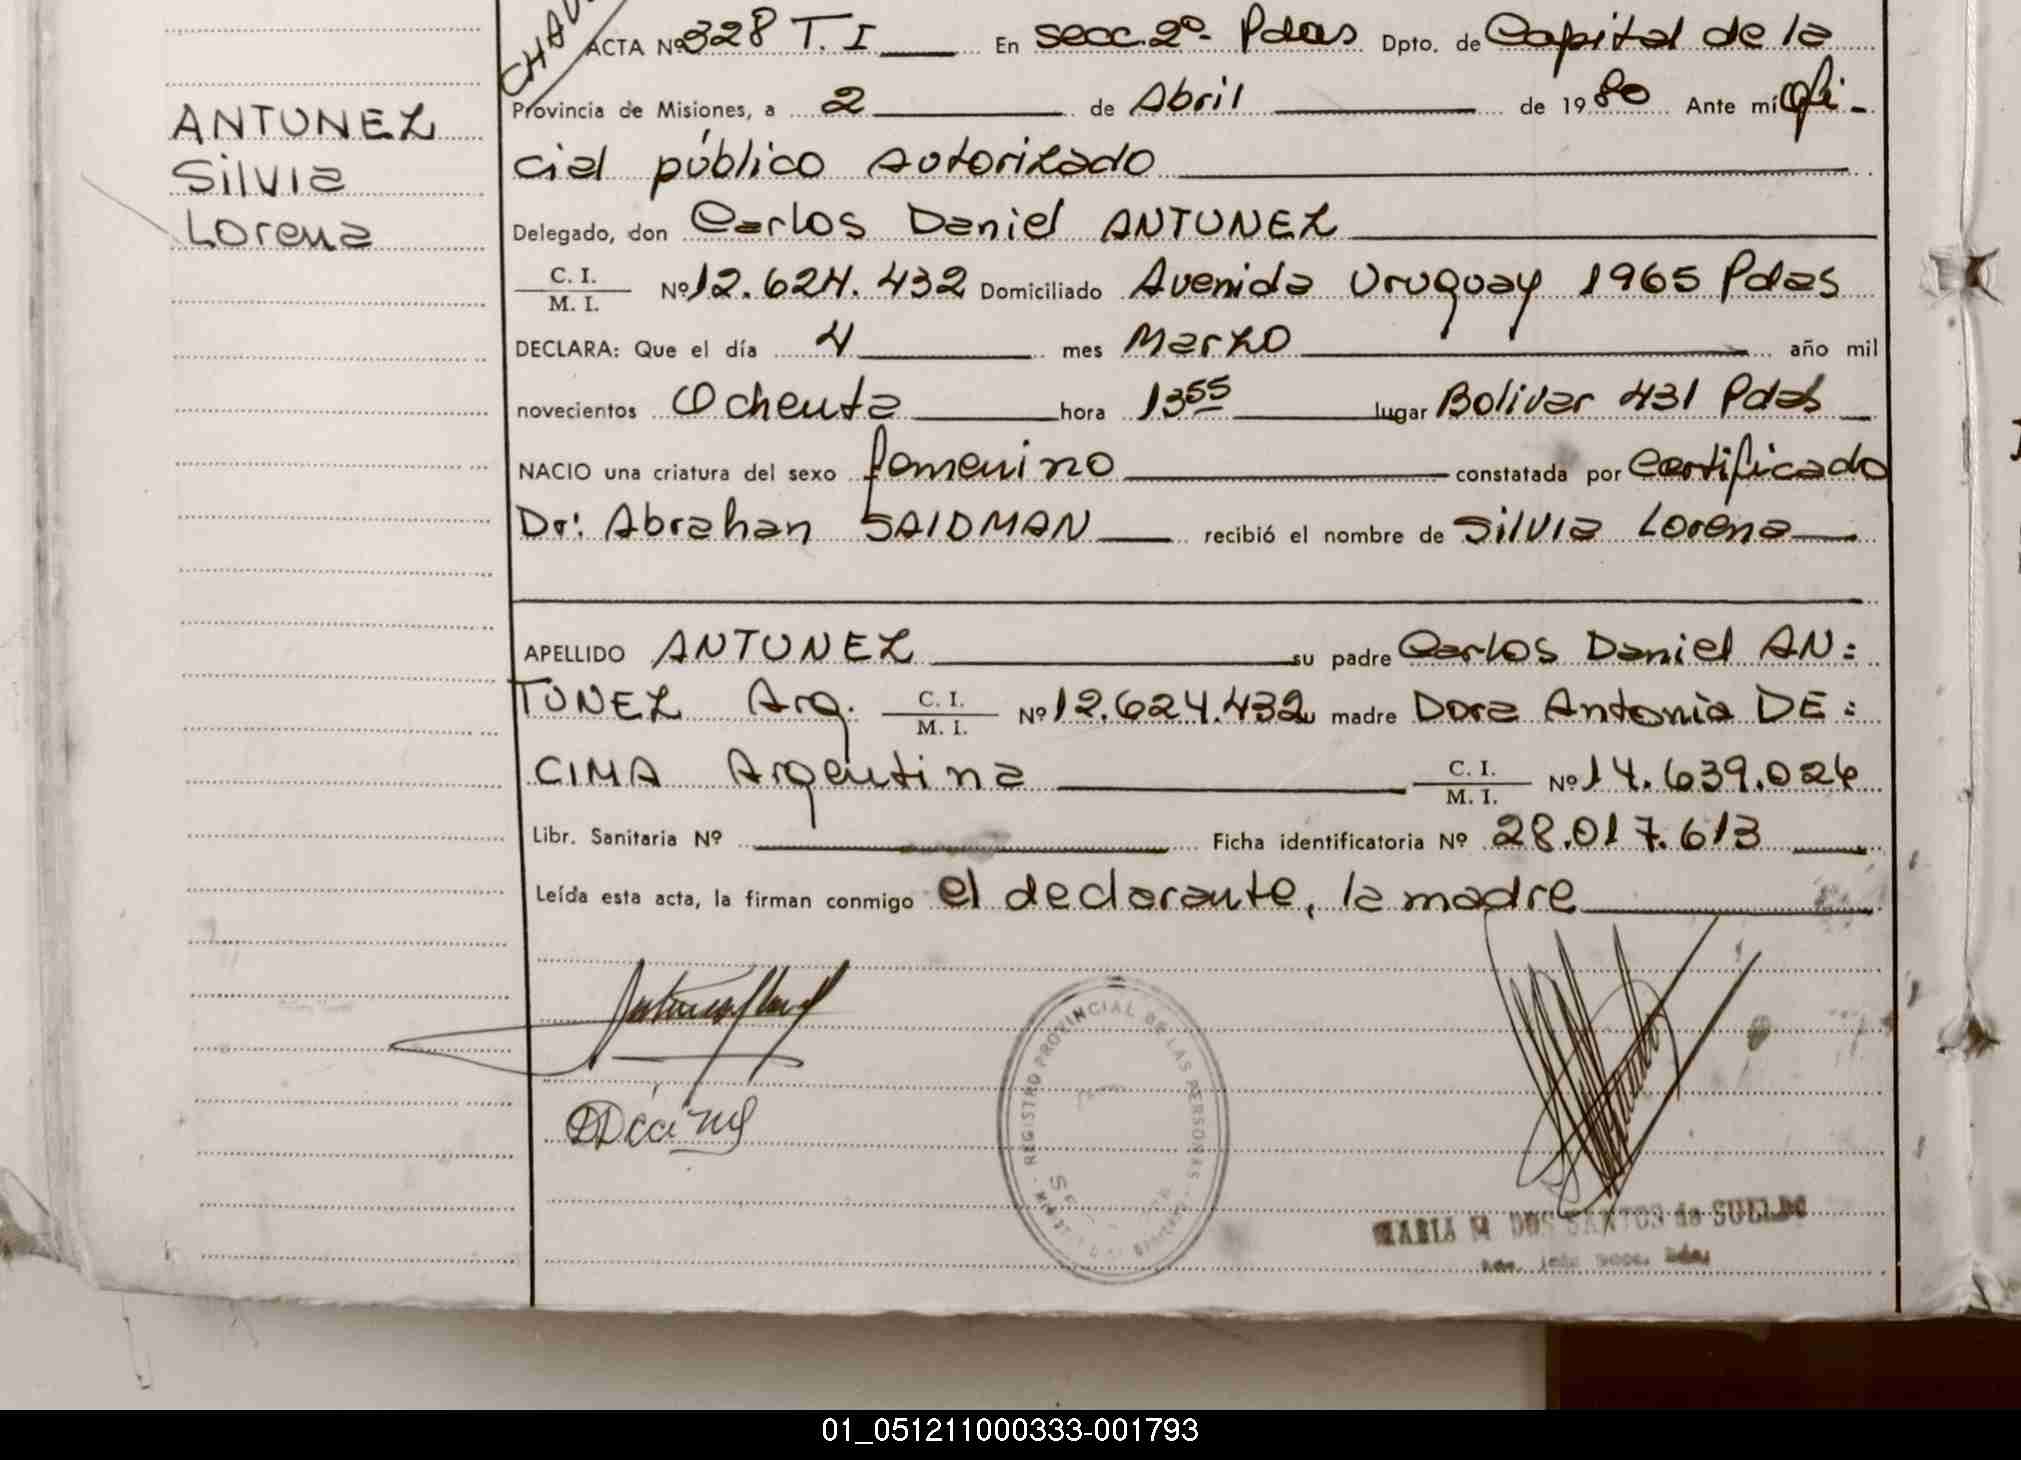 ACTA Nº 328 T. I En secc. 2º- Pdas Dpto. de Capital de la
Provincia de Misiones, a 2 de Abril de 1980 Ante mí ofi-
cial público autorizado
Delegado, don Carlos Daniel ANTUNEZ
C. I.
M. I.
Nº 12.624.432 Domiciliado Avenida Uruguay 1965 Pdas
DECLARA: Que el día 4 mes Marzo año mil
novecientos Ochenta hora 13 55 lugar Bolivar 431 Pdas
NACIO una criatura del sexo femenino constatada por Certificado
Dr: Abrahan SAIDMAN recibió el nombre de Silvia Lorena
APELLIDO ANTUNEZ su padre Carlos Daniel AN=
TUNEZ Arg. C. I. M. I. Nº 12.624.432 su madre Dora Antonia DE=
CIMA Argentina C. I. M. I. Nº 14.639.026
Libr. Sanitaria Nº Ficha identificatoria Nº 28.017.613
Leída esta acta, la firman conmigo el declarante, la madre
ANTUNEZ
Silvia
Lorena
REGISTRO PROVINCIAL DE LAS PERSONAS
MARIA DOS SANTOS de
01_051211000333-001793